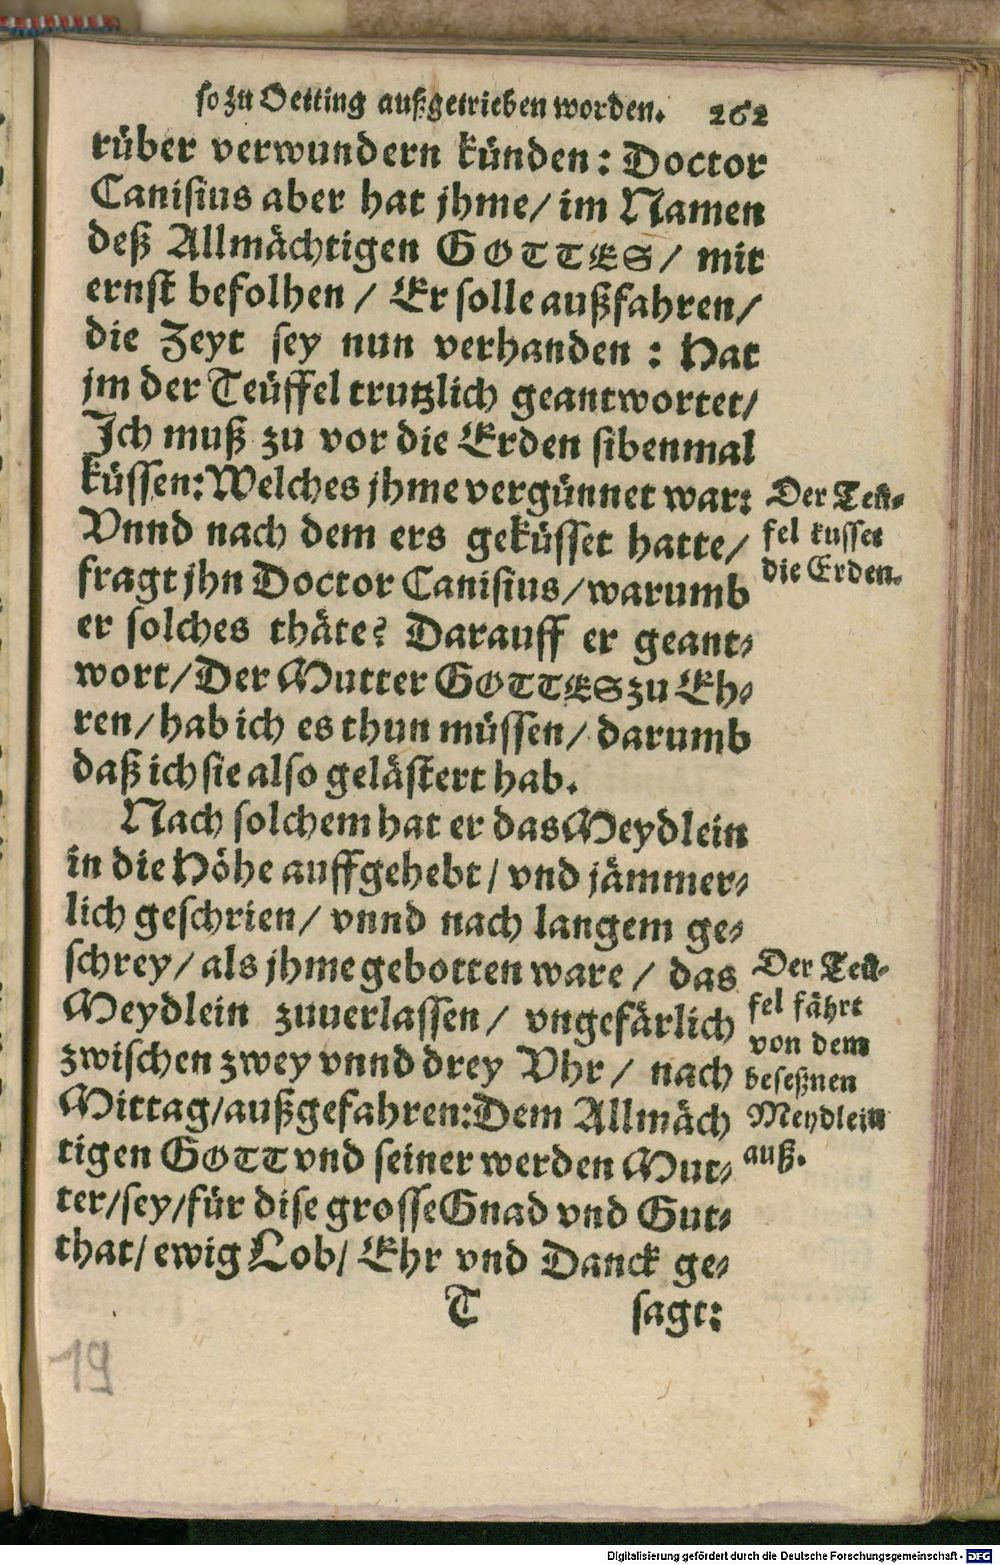 so zu Oetting außgetrieben worden. 262
rüber verwundern künden: Doctor
Canisius aber hat jhme/ im Namen
deß Allmächtigen GOTTES/ mit
ernst befolhen / Er solle außfahren/
die Zeyt sey nun verhanden : Hat
jm der Teüffel trutzlich geantwortet/
Ich muß zu vor die Erden sibenmal
küssen: Welches jhme vergünnet war:
Vnnd nach dem ers geküsset hatte/
fragt jhn Doctor Canisius/ warumb
er solches thäte? Darauff er geant-
wort/ Der Mutter GOTTES zu Eh-
ren/ hab ich es thun müssen/ darumb
daß ich sie also gelästert hab.
Der Teü-
fel kusset
die Erden.
Nach solchem hat er das Meydlein
in die Höhe auffgehebt/ vnd jämmer-
lich geschrien/ vnnd nach langem ge-
schrey/ als jhme gebotten ware / das
Meydlein zuuerlassen/ vngefärlich
zwischen zwey vnnd drey Vhr/ nach
Mittag/ außgefahren: Dem Allmäch
tigen GOTT vnd seiner werden Mut-
ter/ sey/ für dise grosse Gnad vnd Gut-
that/ ewig Lob/ Ehr vnd Danck ge-
Der Teü-
fel fährt
von dem
beseßnen
Meydlein
auß.
T sagt:
19
Digitalisierung gefördert durch die Deutsche Forschungsgemeinschaft - DFG